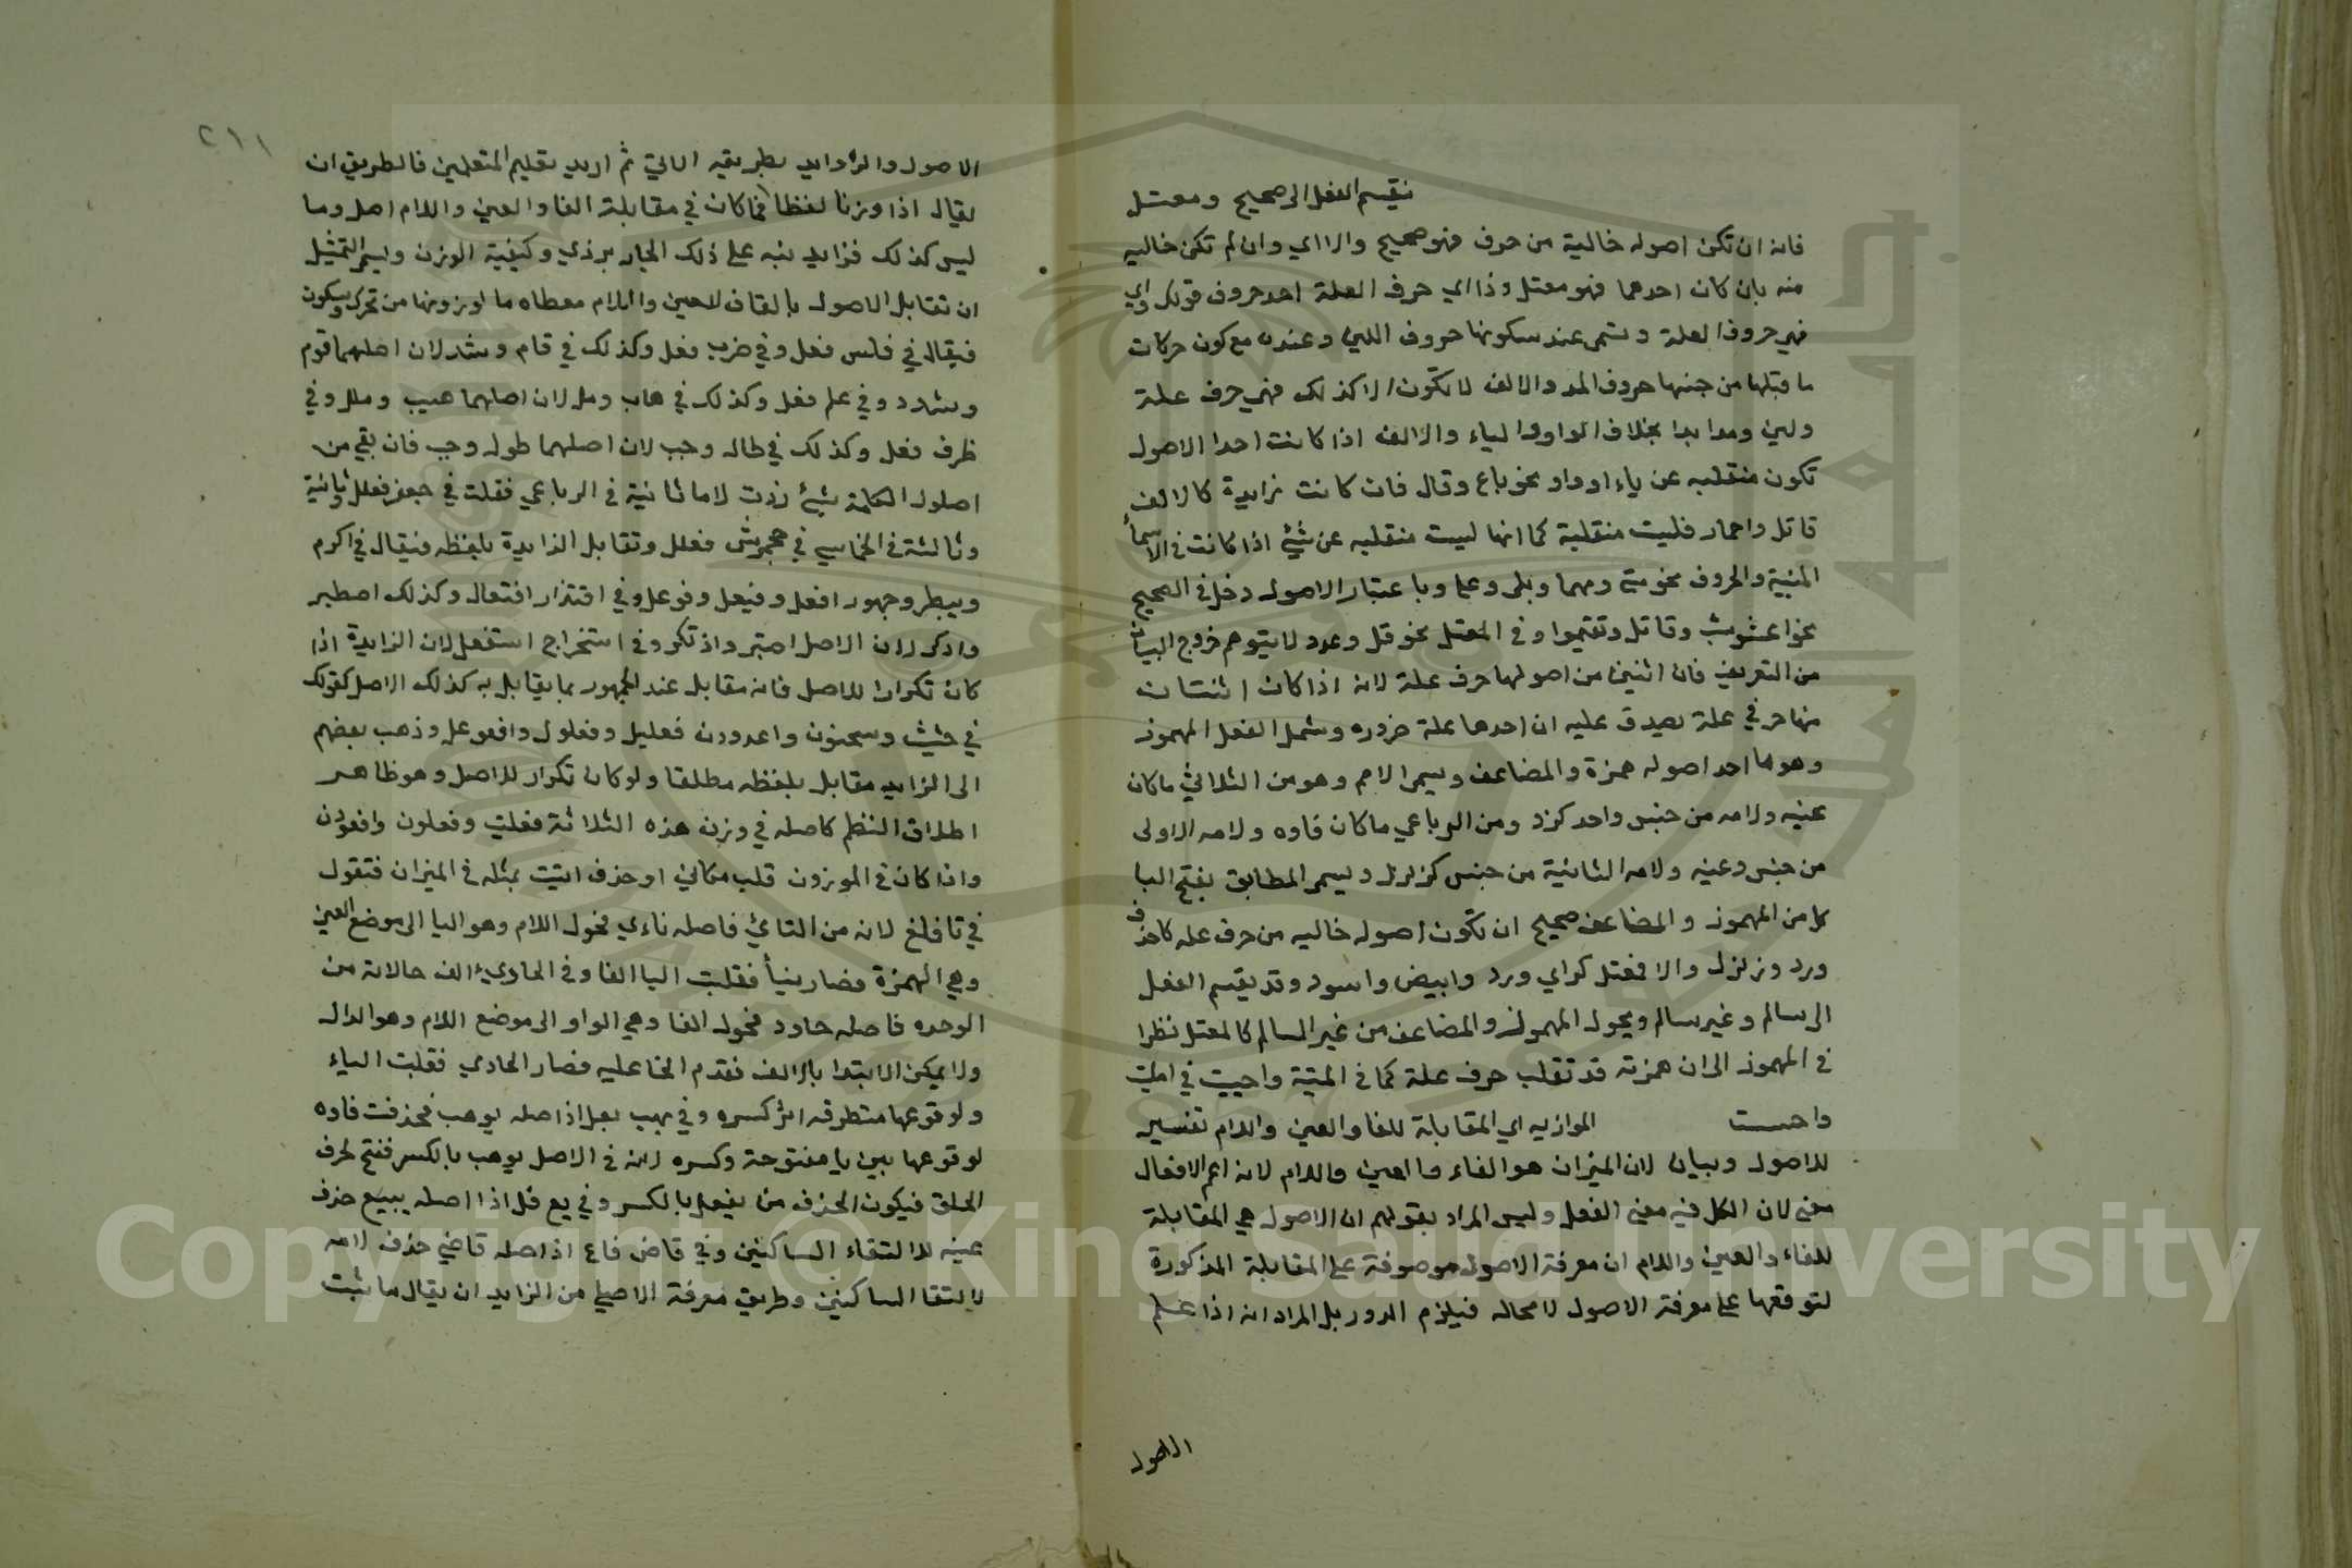 تقسيم الفعل الى صحيح ومعتل
فانه ان تكن اصوله خالية من حرف فهو صحيح والا اي وان لم تكن خاليه
منه بان كان احدهما فهو معتل وذا اي حرف العلة احد حروف قولك واي
فهي حروف العلة وتسمى عند سكونها حروف اللين وعنده مع كون حركات
ما قبلها من جنسها حروف المد والالف لا تكون الا كذلك فهي حرف علة
ولين ومد ابدا بخلاف الواو والياء والالف اذا كانت احدا الاصول
تكون منقلبه عن ياء او واو نحو باع وقال فان كانت زايدة كالالف
قاتل واحمار فليست منقلبة كما انها ليست منقلبه عن شئ اذا كانت في الاسما
المبنية والحروف نحو متى ومهما وبلى وعلى وباعتبار الاصول دخل في الصحيح
نحو اعشوشب وقاتل وتقيموا وفي المعتل نحو قل وعد ولا يتوهم خروج البيان
من التعريف فان اثنين من اصولها حرف علة لانه اذا كان اثنتان
منها حرفي علة يصدق عليه ان احدها علة ضروره وشمل الفعل المهموز
وهو ما احد اصوله همزة والمضاعف ويسمى الاصم وهو من الثلاثي ما كان
عينه ولامه من جنس واحد كرد ومن الرباعي ما كان فاوه ولامه الاولى
من جنس وعينه ولامه الثانية من جنس كزلزل ويسمى المطابق بفتح البا
كل من المهموز والمضاعف صحيح ان تكون اصوله خاليه من حرف عله كاخذ
ورد وزلزل والا فمعتل كراي وود وابيض واسود وقد يقسم الفعل
الى سالم وغير سالم ويحول المهموز والمضاعف من غير السالم كالمعتل نظرا
في المهموز الى ان همزته قد تقلب حرف علة كما في
واحست الموازيه اي المقابلة للفا والعين واللام تفسير
للاصول وبيان لان الميزان هو الفاء والعين واللام لانه اعم الافعال
معنى لان الكل فيه معنى الفعل وليس المراد بقولهم ان الاصول هي المقابلة
للفاء والعين واللام ان معرفة الاصول موصوفة على المقابلة المذكورة
لتوقفها على معرفة الاصول لا محاله فيلزم الدور بل المراد انه اذا علم
الاصول
٢١١
الاصول والزوايد بطريقه الاتي ثم اريد تعليم المتعلمين فالطريق ان
يقال اذا وزنا لفظا فما كان في مقابلة الفا والعين واللام اصل وما
ليس كذلك فزايد نبه على ذلك الجار بردي وكيفية الوزن ويسمى التمثيل
ان تقابل الاصول بالفا فالعين واللام معطاه ما لوزونها من تحرك وسكون
فيقال في فلس فعل وفي ضرب فعل وكذلك في قام وشد لان اصلهما قوم
وشدد وفي علم فعل وكذلك في هاب ومل لان اصلهما هيب وملل وفي
ظرف فعل وكذلك في طال وحب لان اصلهما طول وحبب فان بقي من
اصول الكلمة شئ زدت لاما ثانية في الرباعي فقلت في جعفر فعلل وثانية
وثالثة في الخماسي في جحمرش فعلل وتقابل الزايدة بلفظه فيقال في اكرم
وبيطر وجهور افعل وفيعل وفوعل وفي اقتدار افتعال وكذلك اصطبر
واذكر لان الاصل اصتبر واذتكر وفي استخراج استفعل لان الزايدة اذا
كان تكرارا للاصل فانه مقابل عند الجمهور بما يقابل به كذلك الاصل كقولك
في وسحنون واغدودن فعليل وفعلول وافعوعل وذهب بعضهم
الى الزايد مقابل بلفظه مطلقا ولو كان تكرار للاصل وهو ظاهر
اطلاق النظم كاصله في وزن هذه الثلاثة فعليت وفعلون وافعودن
واذا كان في الموزون قلب مكاني او حذف اتيت بمثله في الميزان فتقول
في نا فلع لانه من النائ فاصله نأي فحول اللام وهو اليا الى موضع العين
وهي الهمزة فصار نيأ فقلبت اليا الفا وفي الحادي عالف حالانه من
الوحده فاصله حاود فحول الفا وهي الواو الى موضع اللام وهو الدال
ولا يمكن الابتدا بالالف فقدم الحا عليه فصار الحادي فقلبت الياء
ولوقوعها متطرفه اثر كسره وفي يهب يعل اذ اصله يوهب فحذفت فاوه
لوقوعها بين يا مفتوحة وكسره لانه في الاصل يوهب بالكسر ففتح لحرف
الحلق فيكون الحذف من يفعل بالكسر وفي بع فل اذ اصله يبيع حذف
عينه لالتقاء الساكنين وفي قاض فاع اذ اصله قاضي حذف لامه
لالتقا الساكنين وطريق معرفة الاصلي من الزايد ان يقال ما ثبت
Copyright © King Saud University